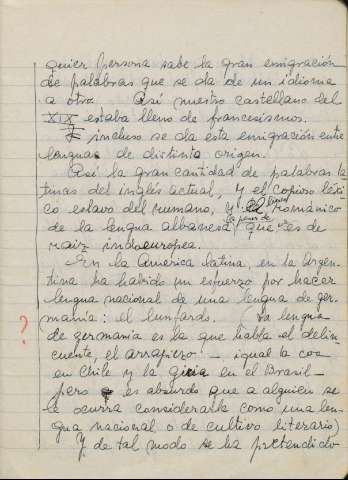 quier persona sabe la gran emigración
de palabras que se da de un idioma
a otro. Así nuestro castellano del
XIX estaba lleno de francesismos.
E incluso se da esta emigración entre
lenguas de distinto origen.
Así la gran cantidad de palabras la-
tinas del inglés actual, y el copioso léxi-
co eslavo del rumano, y el románico
de la lengua albanesa (a pesar de que es de
raiz indoeuropea.
En la América latina, en la Argen-
tina ha habido un esfuerzo por hacer
lengua nacional de una lengua de ger-
? manía: el lunfardo. (La lengua
de germanía es la que habla el delin-
cuente, el arrapiero — igual la coa
en Chile y la giria en el Brasil —
pero es absurdo que a alguien se
le ocurra considerarla como una len-
gua nacional o de cultivo literario)
Y de tal modo se ha pretendido